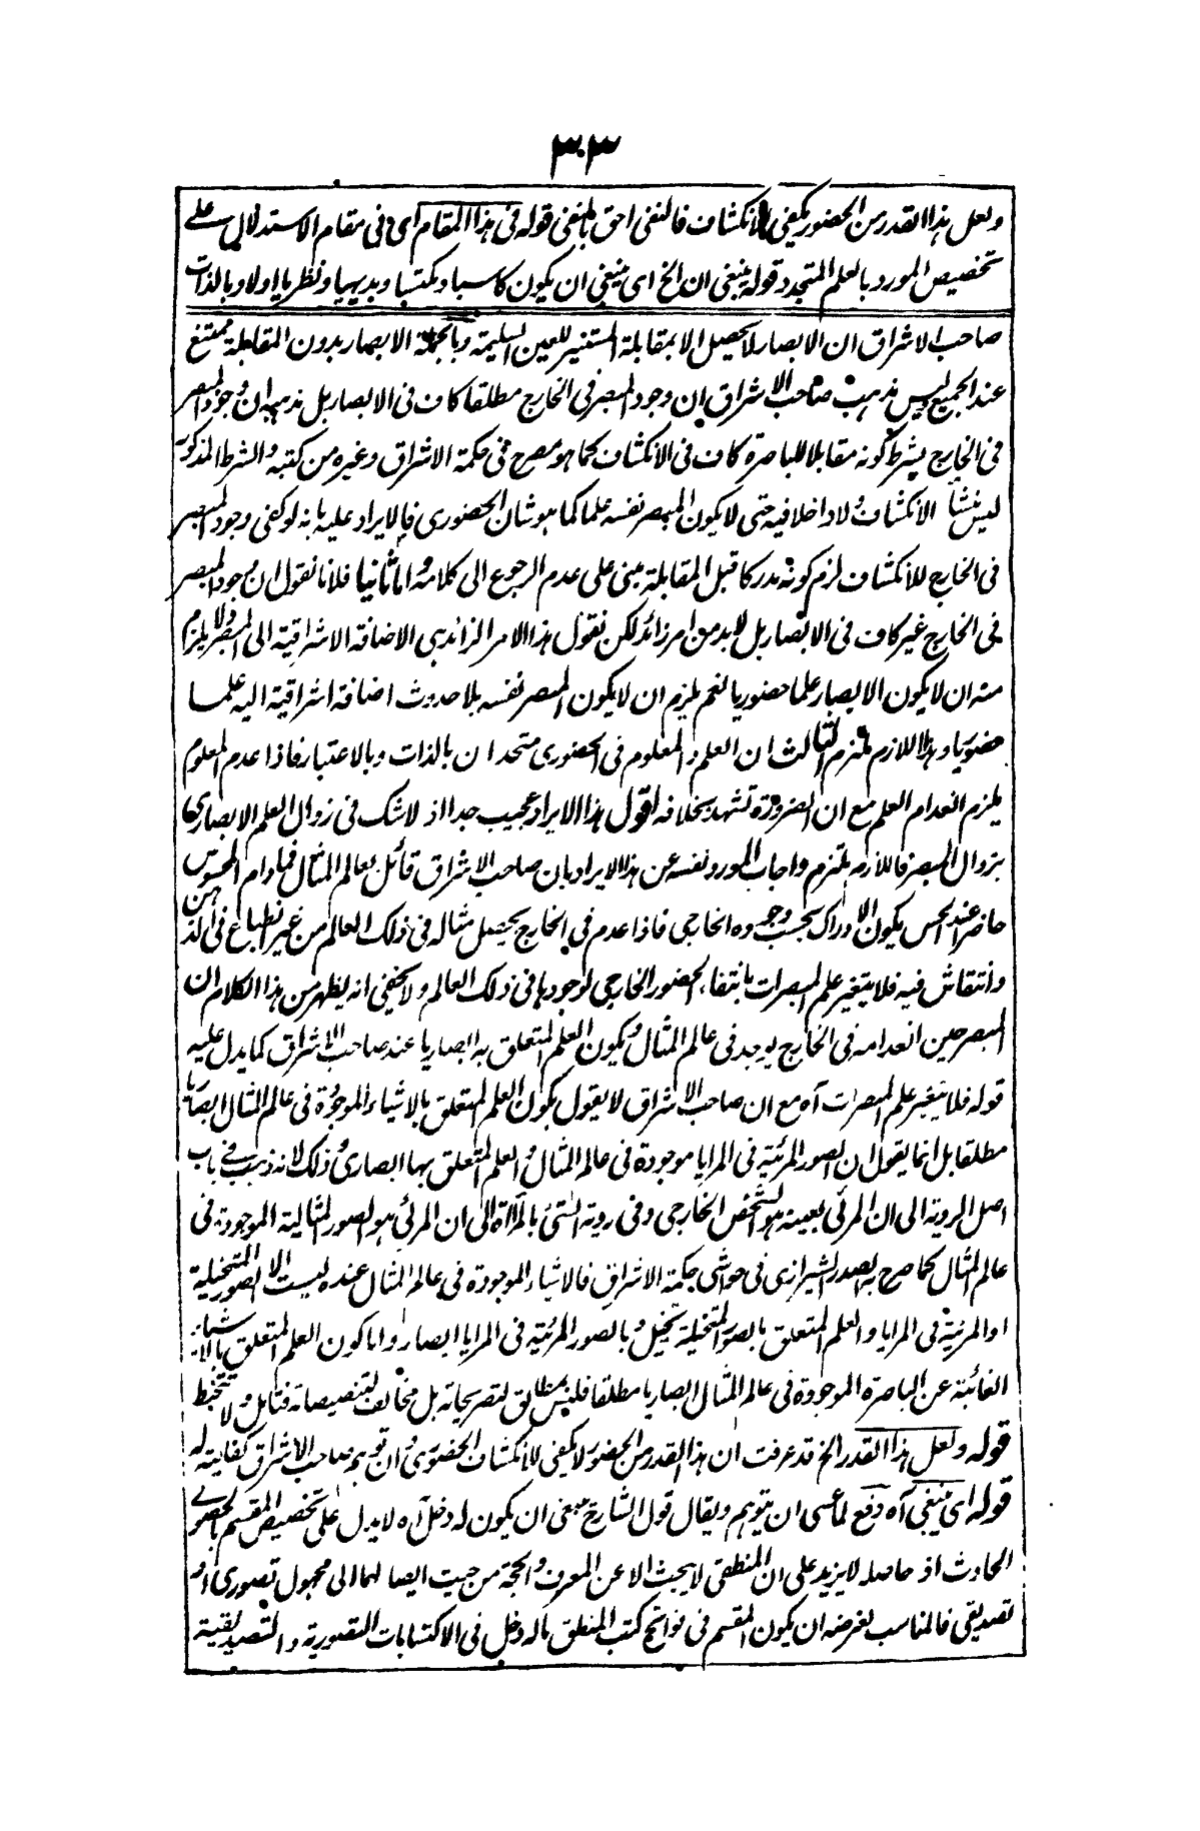 ٣٠٣
ولعل هذا القدر من الحضور يكفى للانكشاف فالنفى احق بالنفى قوله فى هذا المقام اى فى مقام الاستدلال على
تخصيص المورد بالعلم المتجدد قوله ينبغى ان الخ اى ينبغى ان يكون كاسبا ومكتسبا وبديهيا ونظريا اولا وبالذات
صاحب الاشراق ان الابصار لا يحصل الا بمقابلة المستنير للعين السليمة وبالجملة الابصار بدون المقابلة ممتنع
عند الجميع ليس مذهب صاحب الاشراق ان وجود المبصر فى الخارج مطلقا كاف فى الابصار بل مذهبه ان وجود المبصر
فى الخارج بشرط كونه مقابلا للباصرة كاف فى الانكشاف كما هو مصرح فى حكمة الاشراق وغيره من كتبه والشرط المذكور
ليس منشأ الانكشاف ولا داخلا فيه حتى لا يكون المبصر نفسه علما كما هو شان الحضورى فالايراد عليه بانه لو كفى وجود المبصر
فى الخارج للانكشاف لزم كونه مدركا قبل المقابلة مبنى على عدم الرجوع الى كلامه واما ثانيا فلانا نقول ان وجود المبصر
فى الخارج غير كاف فى الابصار بل لا بد من امر زائد لكن نقول هذا الامر الزائد هى الاضافة الاشراقية الى المبصر ولا يلزم
منه ان لا يكون الابصار علما حضوريا نعم يلزم ان لا يكون المبصر نفسه بلا حدوث اضافة اشراقية اليه علما
حضوريا وهذا اللازم ملتزم الثالث ان العلم والمعلوم فى الحضورى متحدان بالذات وبالاعتبار فاذا عدم المعلوم
يلزم انعدام العلم مع ان الضرورة تشهد بخلافه اقول هذا الايراد عجيب جدا اذ لا شك فى زوال العلم الابصارى
بزوال المبصر فاللازم ملتزم واجاب المورد نفسه عن هذا الايراد بان صاحب الاشراق قائل بعالم المثال فما دام المحسوس
حاضرا عند الحس يكون الادراك بحسب وجوده الخارجى فاذا عدم فى الخارج يحصل مثاله فى ذلك العالم من غير انطباع فى الذهن
وانتقاش فيه فلا يتغير علم المبصرات بانتفاء الحضور الخارجى لوجودها فى ذلك العالم ولا يخفى انه يظهر من هذا الكلام ان
المبصر حين انعدامه فى الخارج يوجد فى عالم المثال ويكون العلم المتعلق به ابصاريا عند صاحب الاشراق كما يدل عليه
قوله فلا يتغير علم المبصرات آه مع ان صاحب الاشراق لا يقول بكون العلم المتعلق بالاشياء الموجودة فى عالم المثال ابصاريا
مطلقا بل انما يقول ان الصور المرئية فى المرايا موجودة فى عالم المثال والعلم المتعلق بها ابصارى وذلك لانه ذهب فى باب
اصل الروية الى ان المرئى بعينه هو الشخص الخارجى وفى روية الشئ بالمرآة الى ان المرئى هو الصور المثالية الموجودة فى
عالم المثال كما صرح به الصدر الشيرازى فى حواشى حكمة الاشراق فالاشياء الموجودة فى عالم المثال عنده ليست الا الصور المتخيلة
او المرئية فى المرايا والعلم المتعلق بالصور المتخيلة تخيل وبالصور المرئية فى المرايا ابصار واما كون العلم المتعلق بالاشياء
الغائبة عن الباصرة الموجودة فى عالم المثال ابصاريا مطلقا فليس مطابق لتصريحاته بل مخالف لتنصيصاته فتامل ولا تتخبط
قوله ولعل هذا القدر الخ قد عرفت ان هذا القدر من الحضور لا يكفى للانكشاف الحضورى وان توهم صاحب الاشراق كفايته له
قوله اى ينبغى آه دفع لما عسى ان يتوهم ويقال قول الشارح ينبغى ان يكون له دخل آه لا يدل على تخصيص المقسم بالحصولى
الحادث اذ حاصله لا يزيد على ان المنطقى لا يبحث الا عن المعرف والحجة من حيث ايصالهما الى مجهول تصورى او
تصديقى فالمناسب لغرضه ان يكون المقسم فى فواتح كتب المنطق ماله دخل فى الاكتسابات التصورية والتصديقية